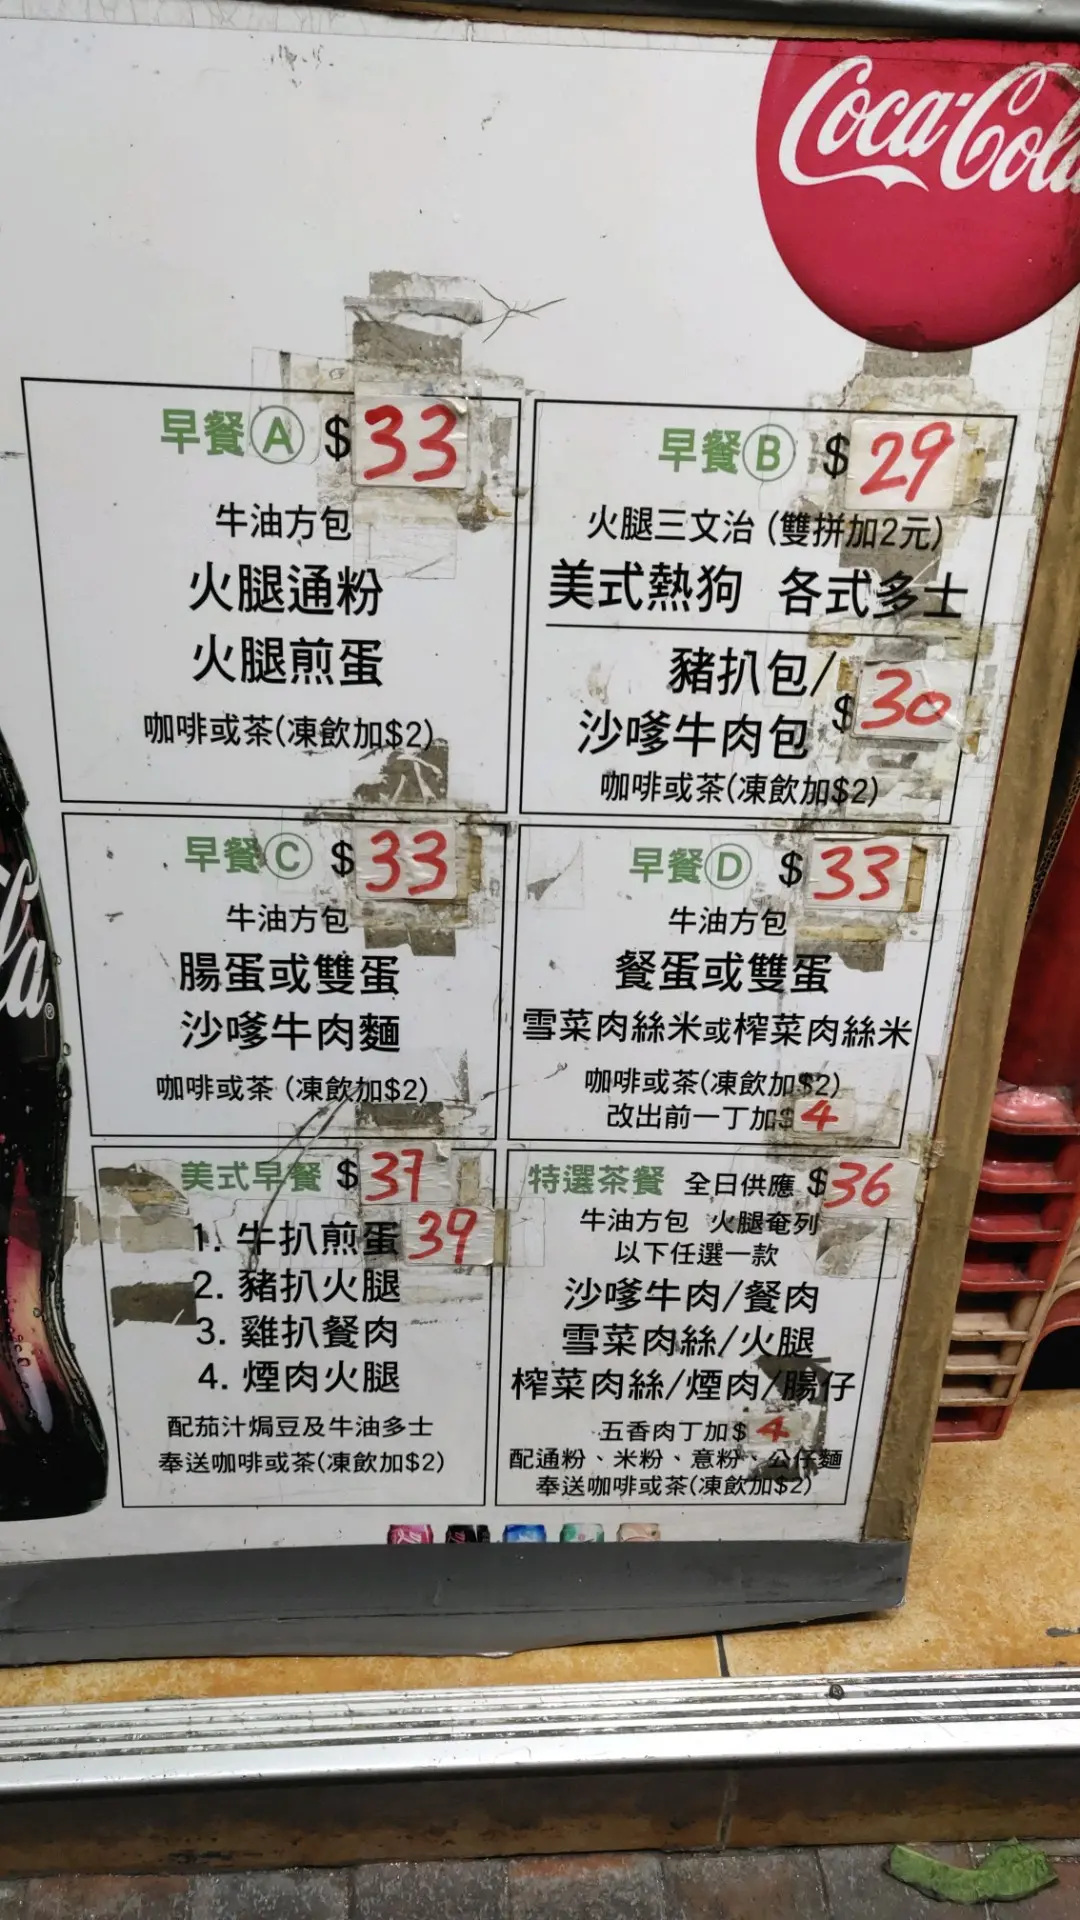 Coca-Cola
早餐Ⓐ $33
牛油方包
火腿通粉
火腿煎蛋
咖啡或茶(凍飲加$2)
早餐Ⓑ $29
火腿三文治 (雙拼加2元)
美式熱狗 各式多士
豬扒包/
沙嗲牛肉包 $30
咖啡或茶(凍飲加$2)
早餐Ⓒ $33
牛油方包
腸蛋或雙蛋
沙嗲牛肉麵
咖啡或茶 (凍飲加$2)
早餐Ⓓ $33
牛油方包
餐蛋或雙蛋
雪菜肉絲米或榨菜肉絲米
咖啡或茶(凍飲加$2)
改出前一丁加$4
美式早餐 $37
1. 牛扒煎蛋 39
2. 豬扒火腿
3. 雞扒餐肉
4. 煙肉火腿
配茄汁焗豆及牛油多士
奉送咖啡或茶(凍飲加$2)
特選茶餐 全日供應 $36
牛油方包 火腿奄列
以下任選一款
沙嗲牛肉/餐肉
雪菜肉絲/火腿
榨菜肉絲/煙肉/腸仔
五香肉丁加$4
配通粉、米粉、意粉、公仔麵
奉送咖啡或茶(凍飲加$2)